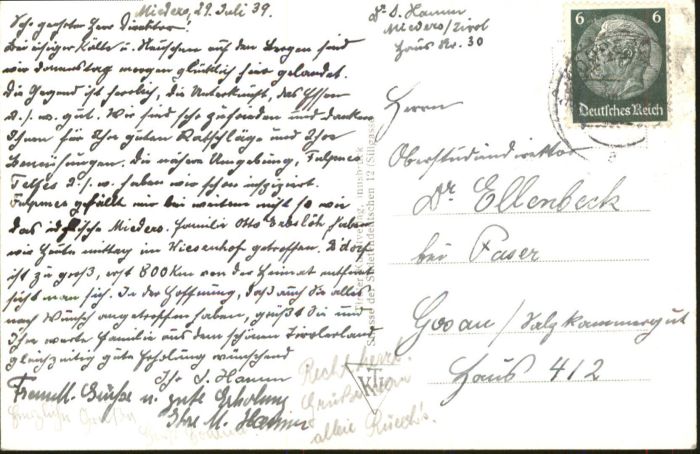 Mieders, 29. Juli 39.
Sehr geehrter Herr Direktor!
Bei eisiger Kälte u. Neuschnee auf den Bergen sind
wir Donnerstag morgen glücklich hier gelandet.
Die Gegend ist herrlich, die Unterkunft, das Essen
u.s.w. gut. Wir sind sehr zufrieden und danken
Ihnen für Ihre guten Ratschläge und Ihre
Bemühungen. Die nähere Umgebung, Fulpmes
Telfes u.s.w. haben wir schon inspiziert.
Fulpmes gefällt mir bei weitem nicht so wie
das idyllische Mieders. Familie Otto haben
wir heute mittag im Wiesenhof getroffen.
ist zu groß, erst 800 km von der Heimat entfernt
sieht man sich. In der Hoffnung, daß auch Sie alles
nach Wunsch angetroffen haben, grüßt Sie und
Ihre werte Familie aus dem schönen Tirolerland
gleichzeitig gute Erholung wünschend
Ihr D. Hamm
Freundl. Grüße u. gute Erholung
Ihre M. Hamm
Herzliche Grüße
Dr. D. Hamm
Mieders/Tirol
Haus Nr. 30
6 6
Deutsches Reich
Herrn
Oberstudiendirektor
Dr. Ellenbeck
bei Paser
Gosau / Salzkammergut
Haus 412
Recht herzl.
Grüße